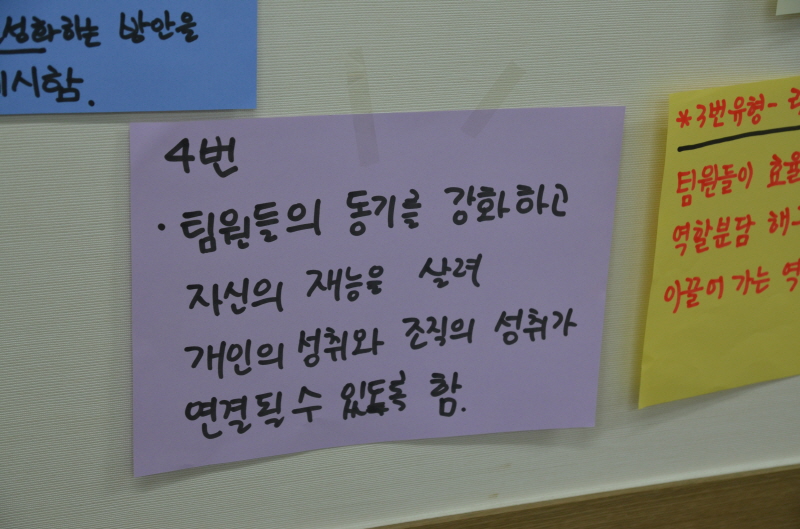 성화하는 방안을
시함.
4번
· 팀원들의 동기를 강화하고
자신의 재능을 살려
개인의 성취와 조직의 성취가
연결될 수 있도록 함.
*3번유형-
팀원들이 효율
역할분담 해
이끌어 가는 역